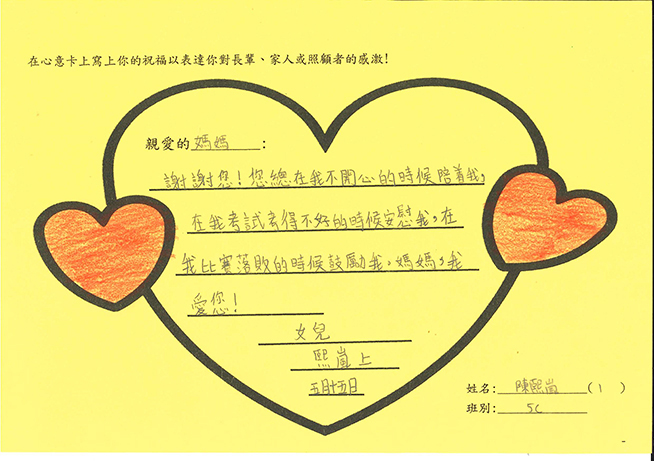 在心意卡上寫上你的祝福以表達你對長輩、家人或照顧者的感激!
親愛的媽媽:
謝謝您!您總在我不開心的時候陪着我,
在我考試考得不好的時候安慰我,在
我比賽落敗的時候鼓勵我。媽媽,我
愛您!
女兒
熙嵐上
五月十五日
姓名: 陳熙嵐 (1)
班別: 5C